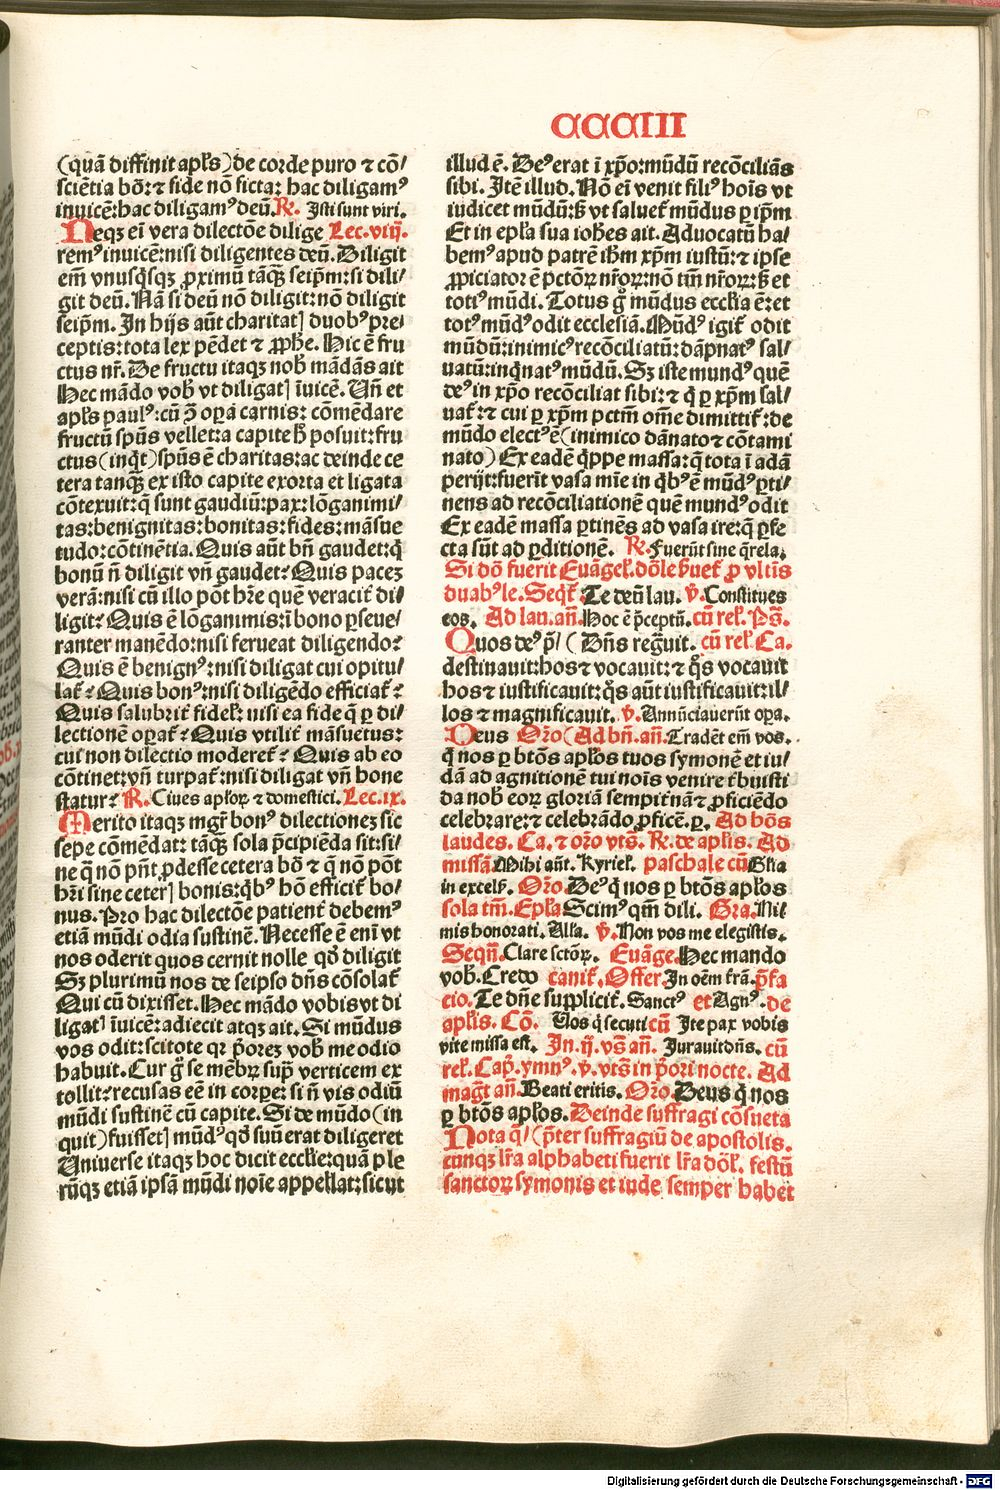 CCCIII
(quā diffinit apl's) de corde puro ⁊ cō/
sciētia bōa: ⁊ fide nō ficta: hac diligam⁹
inuicē: hac diligam⁹ deū. R̷. Isti sunt viri.
Neqꝫ ei̅ vera dilectōe dilige Lec. viij.
rem⁹ inuicē: nisi diligentes deū. Diligit
em̅ vnusq̇sqꝫ ꝓximū tāqꝫ seip̅m: si dili/
git deū. Nā si deū nō diligit: nō diligit
seip̅m. In hijs aūt charitatꝭ duob⁹ pre/
ceptis: tota lex pēdet ⁊ ꝓph̅e. Hic ē fru
ctus nr̅. De fructu itaqꝫ nob̅ mādās ait
Hec mādo vob̅ vt diligatꝭ īuicē. Vn̅ et
apl's paul⁹: cū ↄ̄ oꝑa carnis: cōmēdare
fructū sp̅us vellet: a capite h̅ posuit: fru
ctus (inq̇t) sp̅us ē charitas: ac deinde ce
tera tanqꝫ ex isto capite exorta et ligata
cōtexuit: q̅ sunt gaudiū: pax: lōganimi/
tas: benignitas: bonitas: fides: māsue
tudo: cōtinētia. Quis aūt bn̅ gaudet: q̇
bonū n̅ diligit vn̅ gaudet? Quis pacez
verā: nisi cū illo pōt hr̅e quē veracit̅ di/
ligit? Quis ē lōganimis: ī bono ꝑseue/
ranter manēdo: nisi ferueat diligendo?
Quis ē benign⁹: nisi diligat cui opitu/
lat̅? Quis bon⁹: nisi diligēdo efficiat̅?
Quis salubrit̅ fidel̅: nisi ea fide q̅ ꝑ di/
lectionē oꝑat̅? Quis vtilit̅ māsuetus:
cui non dilectio moderet̅? Quis ab eo
cōtinet: vn̅ turpat̅: nisi diligat vn̅ hone
statur? R̷. Ciues apl'oꝝ ⁊ domestici. Lec. ix.
Merito itaqꝫ mgr̅ bon⁹ dilectionez sic
sepe cōmēdat: tāqꝫ sola p̅cipiēda sit: si/
ne q̅ nō pn̅t ꝓdesse cetera bōa ⁊ q̅ nō pōt
hr̅i sine ceterꝭ bonis: q̇b⁹ hō efficit̅ bo/
nus. Pro hac dilectōe patient̅ debem⁹
etiā mūdi odia sustinē. Necesse ē enī vt
nos oderit quos cernit nolle qd̅ diligit
Sꝫ plurimū nos de seipso dn̅s cōsolat̅
Qui cū dixisset. Hec mādo vobis vt di
ligatꝭ īuicē: adiecit atqꝫ ait. Si mūdus
vos odit: scitote qꝛ p̅orez vob̅ me odio
habuit. Cur g̊ se mēbꝝ sup̅ verticem ex
tollit? recusas eē in corpe: si n̅ vis odiū
mūdi sustinē cū capite. Si de mūdo (in
quit) fuissetꝭ mūd⁹ qd̅ suū erat diligeret
Vniuerse itaqꝫ hoc dicit eccl'ie: quā ple
rūqꝫ etiā ipsā mūdi noīe appellat: sicut
illud ē. De⁹ erat ī xp̅o: mūdū recōciliās
sibi. Itē illud. Nō ei̅ venit fili⁹ hoīs vt
iudicet mūdū: ꝫ vt saluet̅ mūdus ꝑ ip̅m
Et in epl'a sua ioh̅es ait. Aduocatū ha/
bem⁹ apud patrē ih̅m xp̅m iustū: ⁊ ipse
ꝓpiciator ē pctōꝝ nr̅oꝝ: nō tm̅ nr̅oꝝ: ꝫ et
toti⁹ mūdi. Totus g̊ mūdus eccl'ia ē: et
tot⁹ mūd⁹ odit ecclesiā. Mūd⁹ igit̅ odit
mūdū: inimic⁹ recōciliatū: dāpnat⁹ sal/
uatū: inq̇nat⁹ mūdū. Sꝫ iste mund⁹ quē
de⁹ in xp̅o recōciliat sibi: ⁊ q̇ ꝑ xp̅m sal/
uat̅: ⁊ cui ꝑ xp̅m pctm̅ om̅e dimittit̅: de
mūdo elect⁹ ē (inimico dānato ⁊ cōtami
nato) Ex eadē q̇ppe massa: q̅ tota ī adā
perijt: fuerīt vasa mīe in q̇b⁹ ē mūd⁹ ꝑti/
nens ad recōciliationē quem mund⁹ odit
Ex eadē massa ꝑtinēs ad vasa ire: q̅ ꝑfe
cta sūt ad ꝑditionē. R̷. Fuerūt sine q̅rela.
Si dō fuerit Euāgel̅. dōle b̅uet̅ ꝓ vltīs
duab⁹ le. Seqt̅. Te deū lau. ℣. Constitues
eos. Ad lau. an̅. Hoc ē p̅ceptū. cū rel̅. Ps̅.
Quos de⁹ p̅/ (Dn̅s reg̅uit. cū rel̅ Ca.
destinauit: hos ⁊ vocauit: ⁊ q̊s vocauit
hos ⁊ iustificauit: q̊s aūt iustificauit: il/
los ⁊ magnificauit. ℣. Annūciauerūt oꝑa.
Deus Or̅o (Ad bn̅. an̅. Tradēt em̅ vos.
q̇ nos ꝑ btōs apl'os tuos symonē et iu/
dā ad agnitionē tui noīs venire tribuisti
da nob̅ eoꝝ gloriā sempit̅nā ⁊ ꝓficiēdo
celebrare: ⁊ celebrādo ꝓficē. ꝑ. Ad hōs
laudes. Ca. ⁊ or̅o vts̅. R̷. de apl'is. Ad
missā Mihi aūt. Kyriel̅. paschale cū Gl'ia
in excels̅. Or̅o. De⁹ q̇ nos ꝑ btōs apl'os
sola tm̅. Epl'a Scim⁹ qm̅ dili. Gra. Ni/
mis honorati. All'a. ℣. Non vos me elegistis.
Seqn̅. Clare sctōꝝ. Euāge. Hec mando
vob̅. Credo canit̅. Offer. In oēm tr̅a. p̅fa
cio. Te dn̅e supplicit̅. Sanct⁹ et Agn⁹. de
apl'is. Cō. Vos q̇ secuti cū Ite pax vobis
vite missa est. In. ij. vs̅ an̅. Iurauit dn̅s. cū
rel̅. Cap̅. ymn⁹. ℣. vts̅ in p̅ori nocte. Ad
mag̅t an̅. Beati eritis. Or̅o. Deus q̇ nos
ꝑ btōs apl'os. Deinde suffragi cōsueta
Nota q̅/ (p̅ter suffragiū de apostolis.
cunqꝫ lr̅a alphabeti fuerit lr̅a dōl̅. festū
sanctoꝝ symonis et iude semper habet
Digitalisierung gefördert durch die Deutsche Forschungsgemeinschaft - DFG